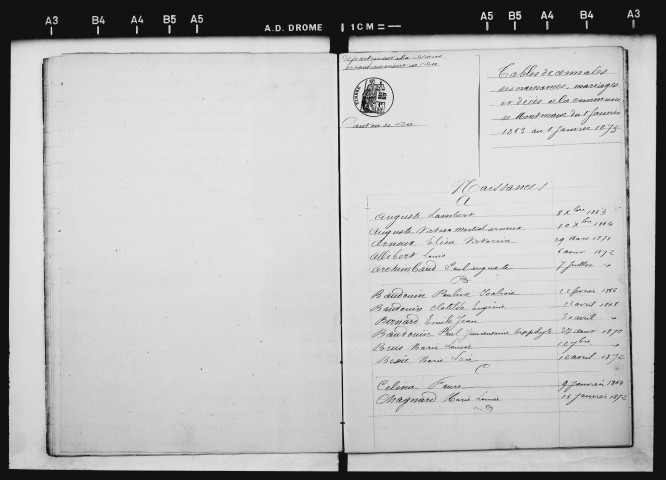 A3 B4 A4 B5 A5 A.D. DROME 1CM A5 B5 A4 B4 A3
Département de la Drôme
Arrondissement de Die
Canton de Die
Tables décennales
des naissances, mariages
et décès de la commune
de Montmaur du 1 Janvier
1863 au 1 Janvier 1873
Naissances
A
Auguste Lambert 8 Xbre 1863
Auguste Victor Martial 10 Xbre 1864
Arnoux 29 Mars 1871
Allibert Louis 1872
Archimbaud Paul Auguste 7 Juillet "
B
Baudouin Pauline 22 février 1866
Baudouin Clotilde Eugénie avril 1868
Bernard Emile Jean avril "
Baudouin Paul 27 août 1870
Marie Louise "
Marie avril 1872
C
Celina Faure 9 Janvier 1864
Chagnard Marie Louise 15 Janvier 1872
D